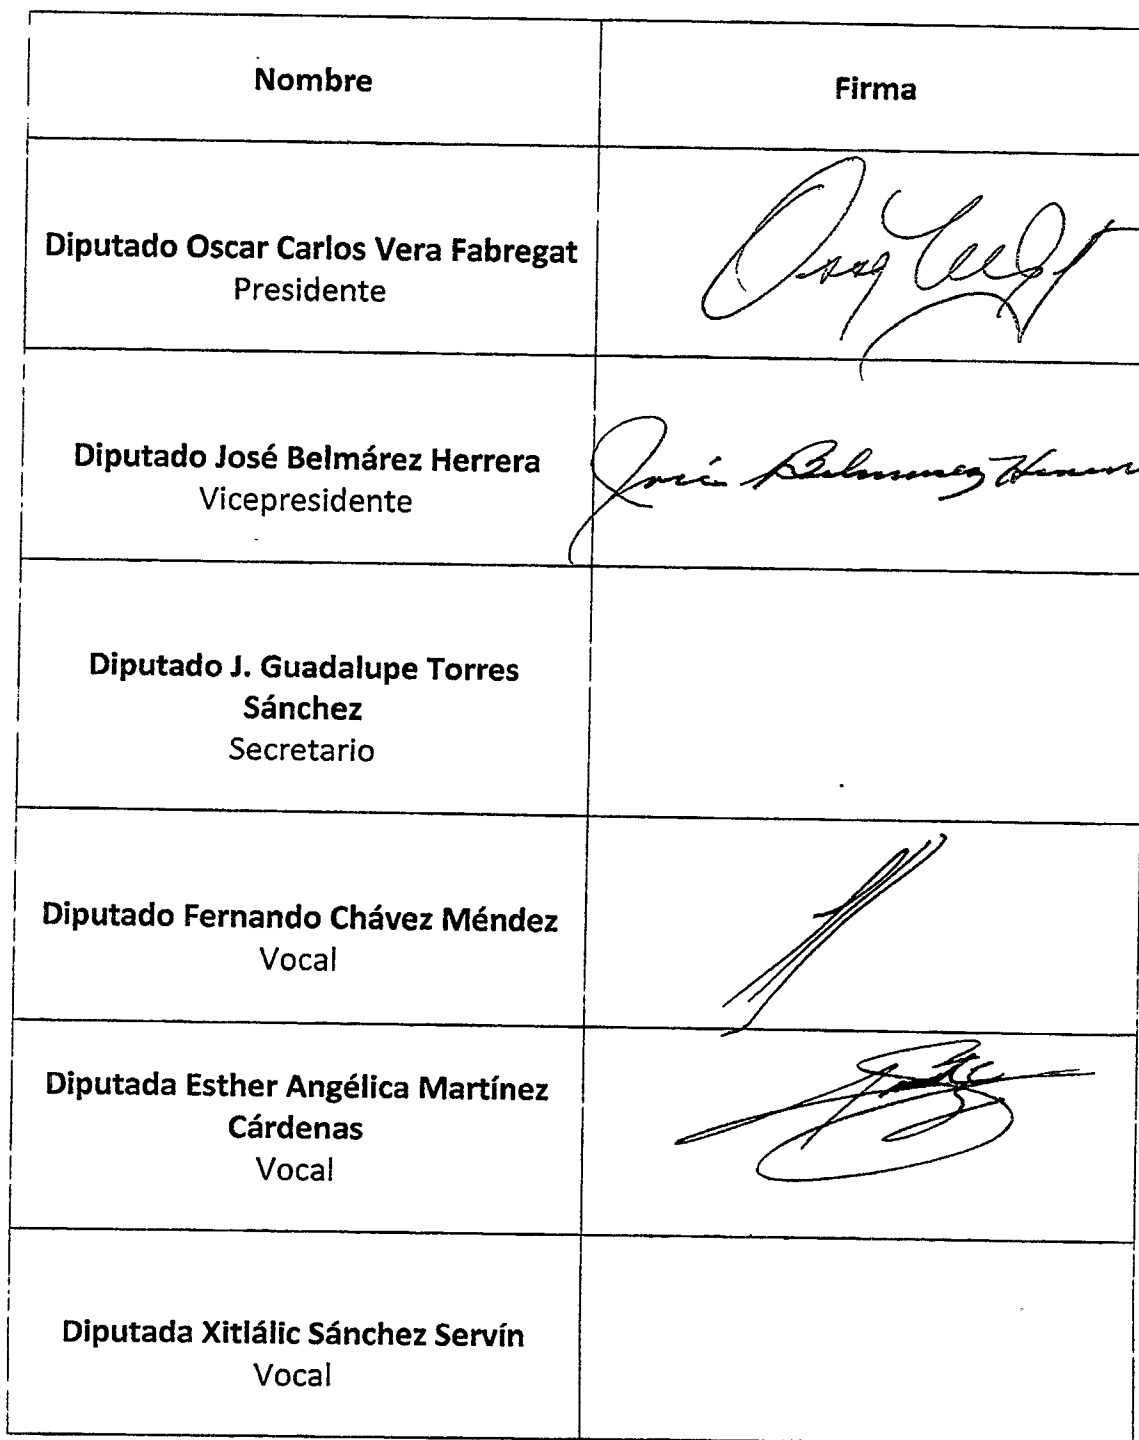 Nombre
Firma
Diputado Oscar Carlos Vera Fabregat
Presidente
Diputado José Belmárez Herrera
Vicepresidente
José Belmarez Herrera
Diputado J. Guadalupe Torres
Sánchez
Secretario
Diputado Fernando Chávez Méndez
Vocal
Diputada Esther Angélica Martínez
Cárdenas
Vocal
Diputada Xitlálic Sánchez Servín
Vocal